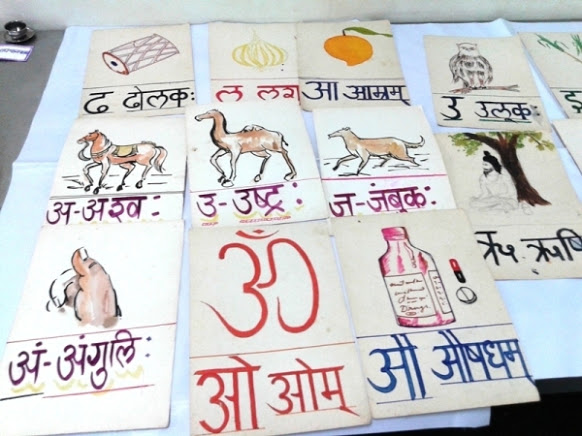 ढ ढोलकः
ल लश
आ आम्रम्
उ उलूकः
अ-अश्वः
उ-उष्ट्रः
ज-जंबुकः
ऋ ऋषि
अं-अंगुलिः
ॐ
ओ ओम्
औ औषधम्